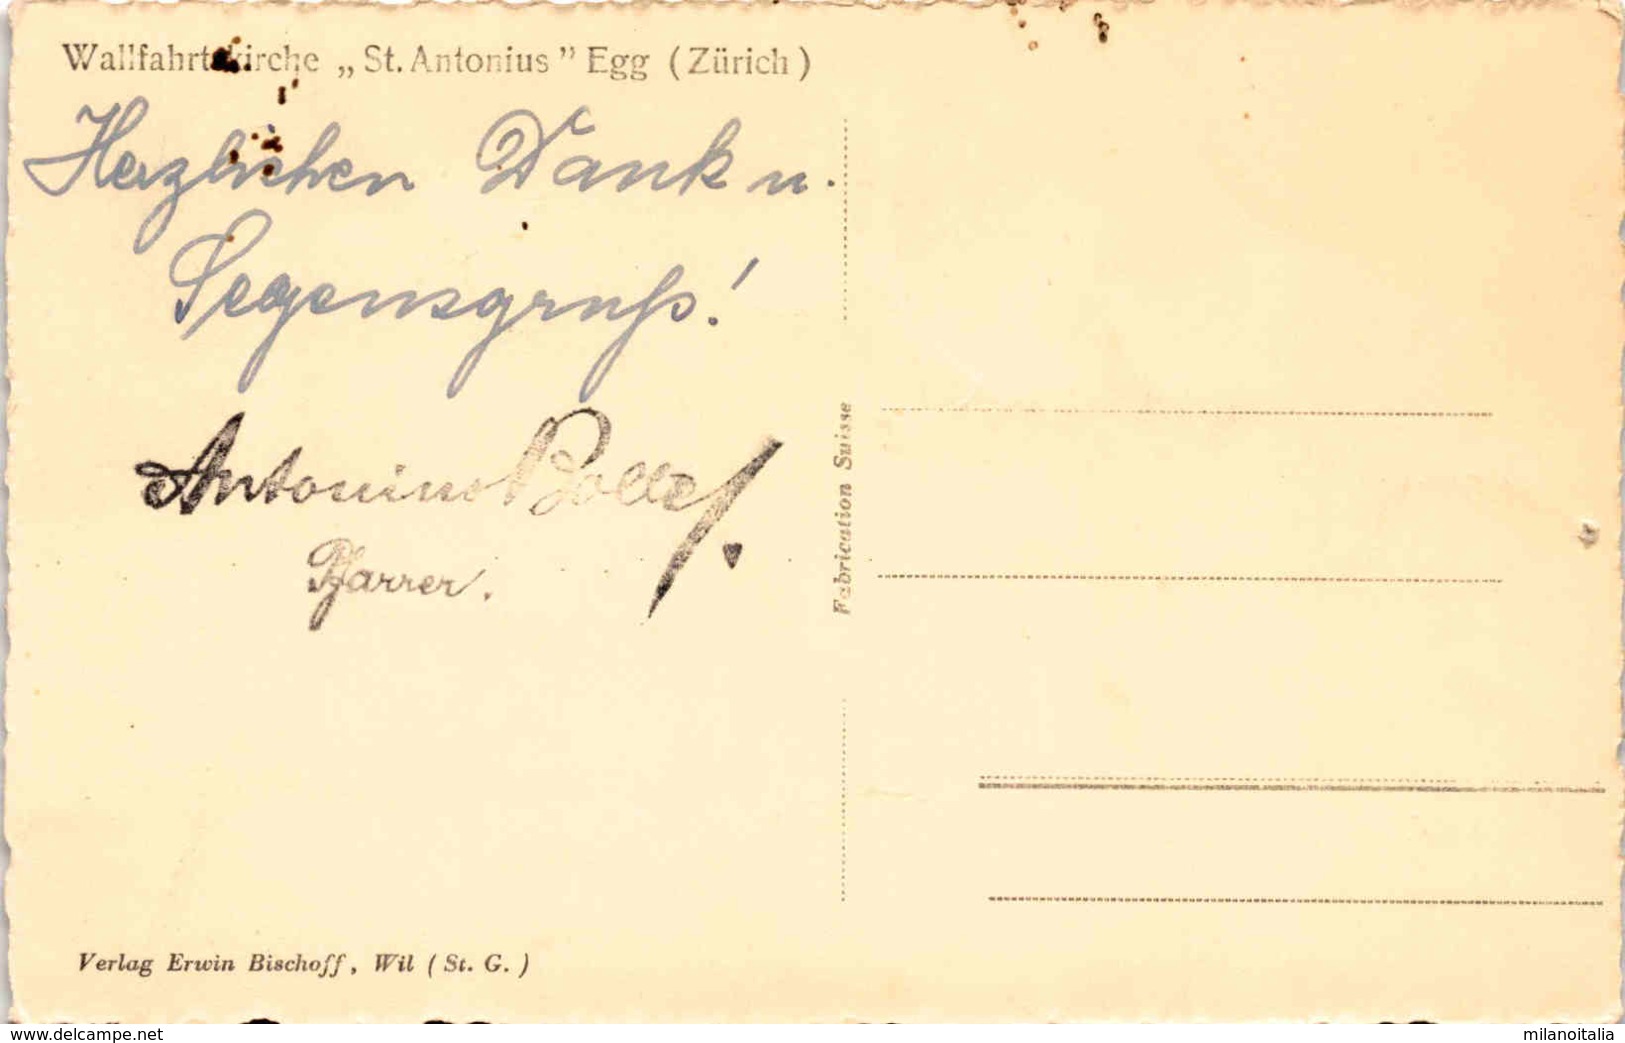 Wallfahrtskirche „St. Antonius” Egg (Zürich)
Herzlichen Dank u.
Segensgruß!
Antoninus Bolte
Pfarrer.
Fabrication Suisse
Verlag Erwin Bischoff, Wil (St. G.)
www.delcampe.net
milanoitalia